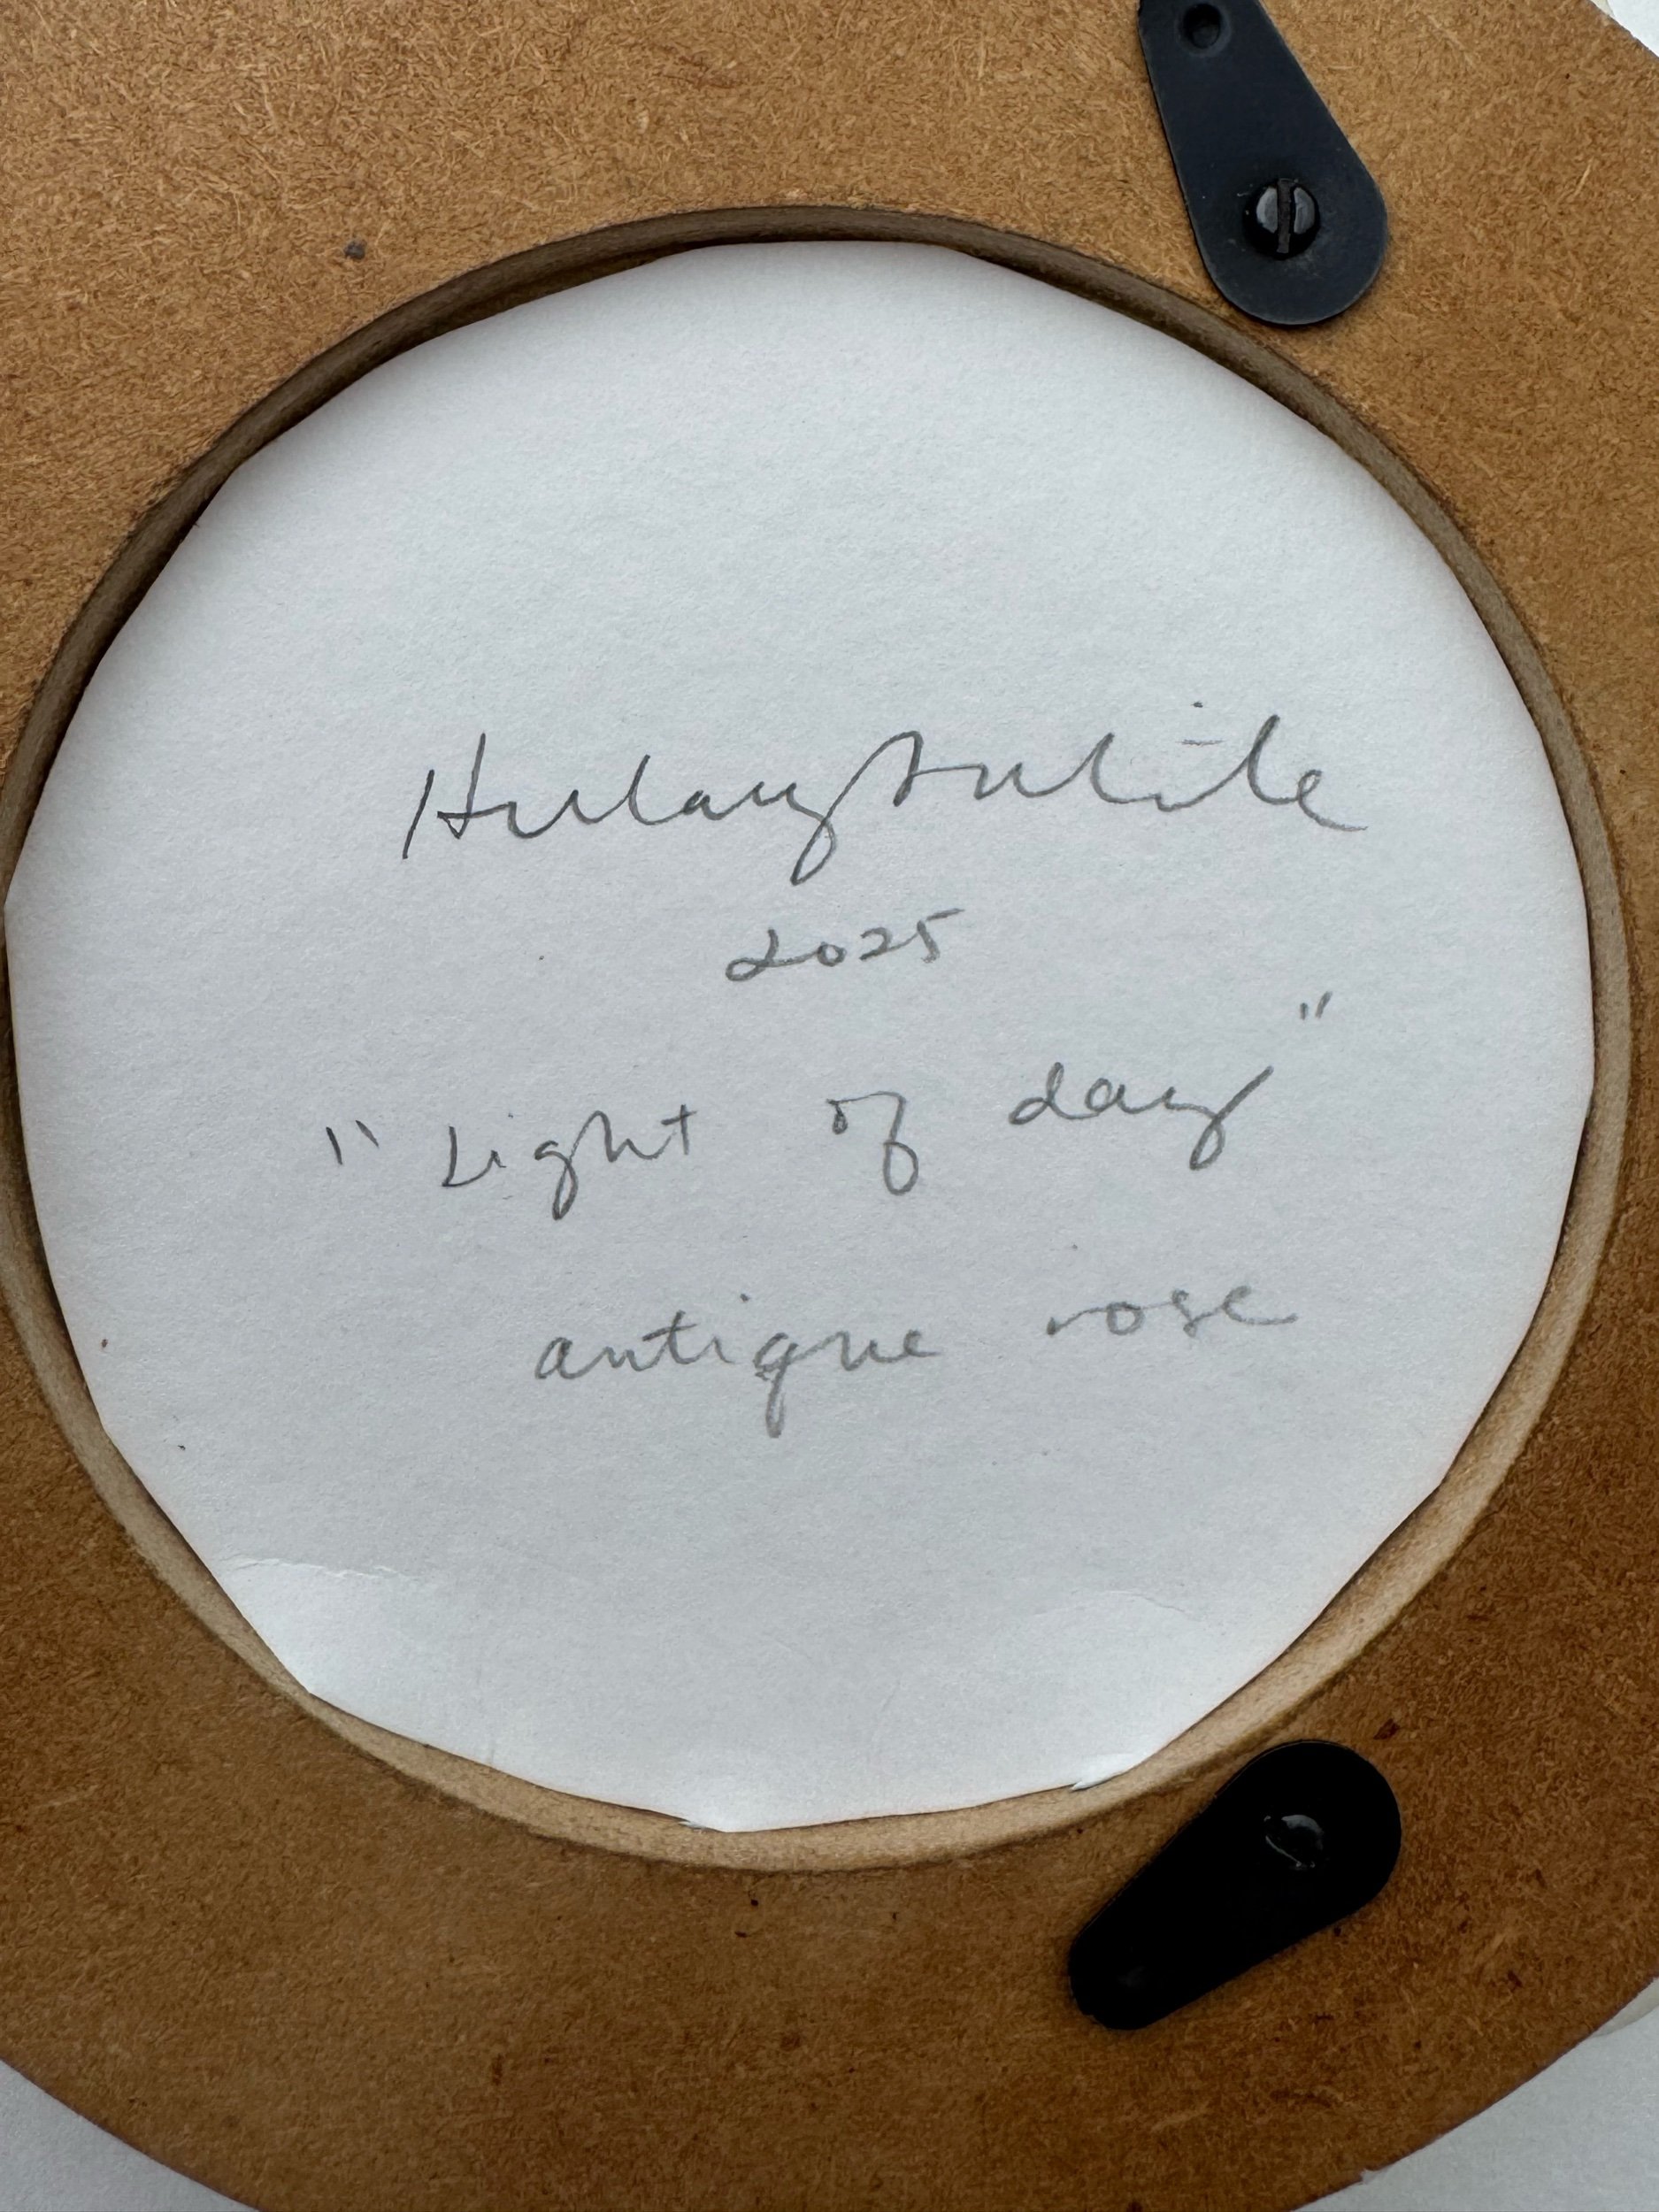 Hilary White
2025
"Light of day"
antique rose